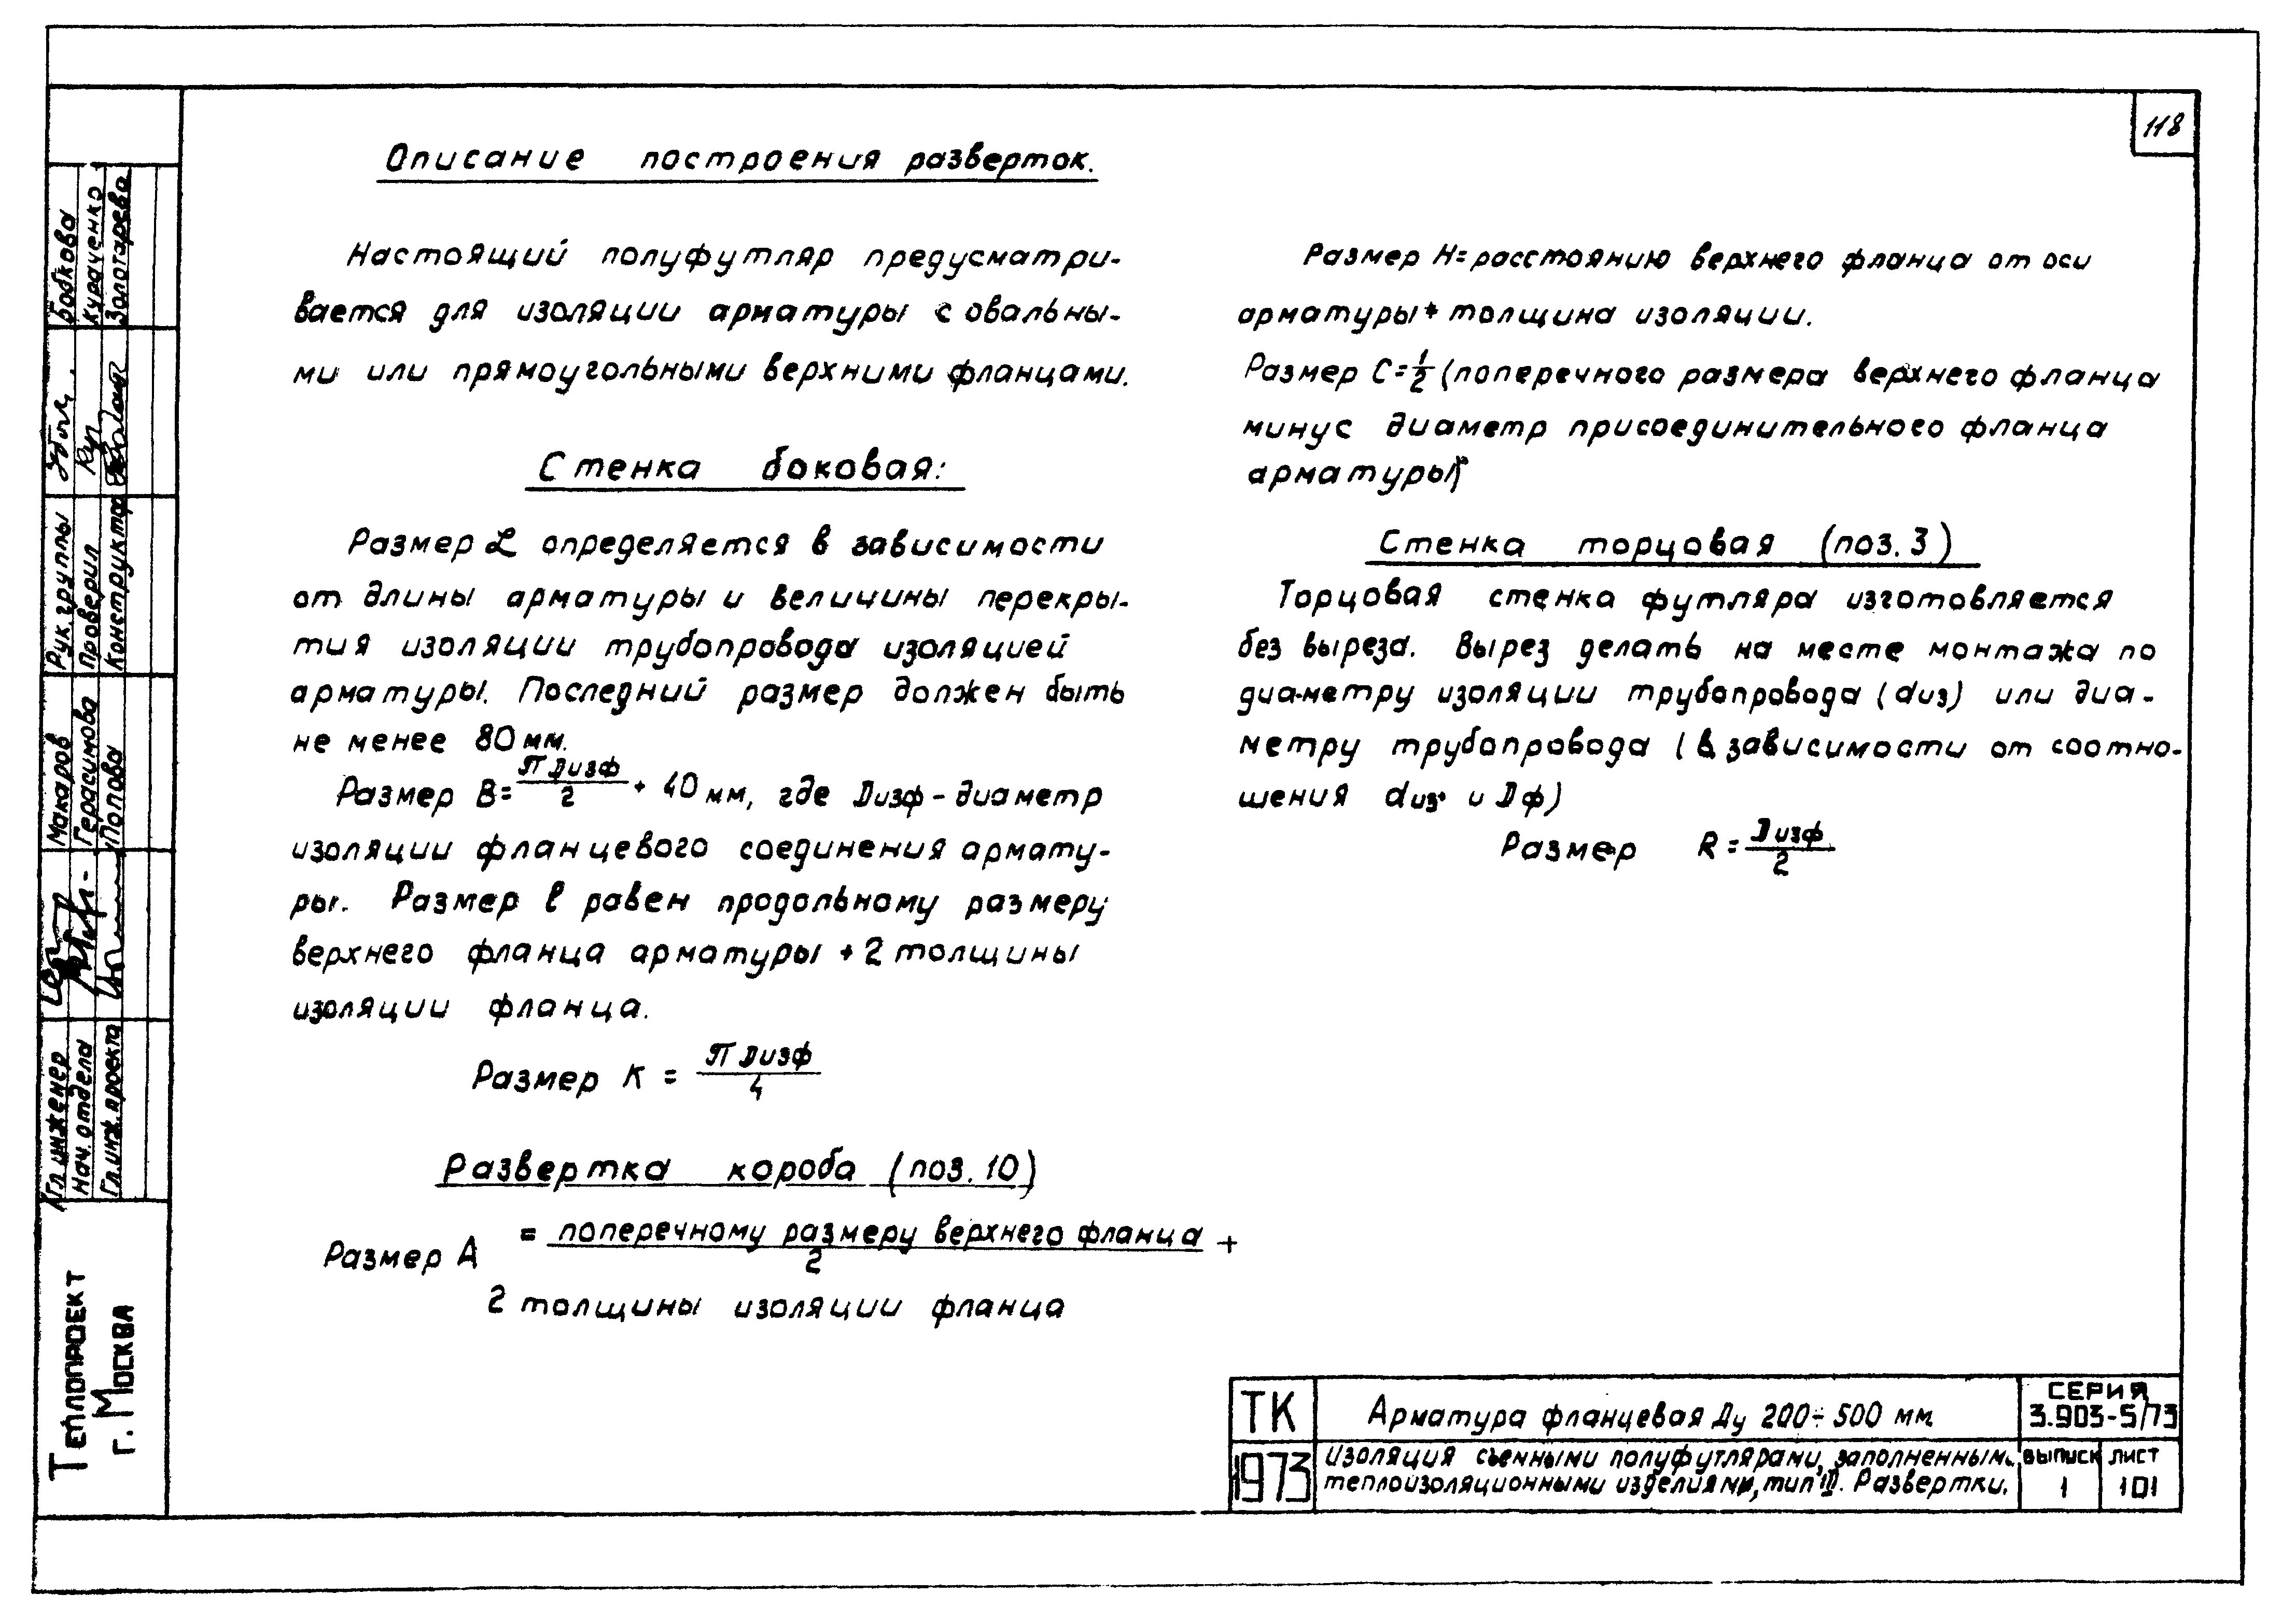 118
Описание построения разверток.
Настоящий полуфутляр предусматри-
вается для изоляции арматуры с овальны-
ми или прямоугольными верхними фланцами.
Стенка боковая:
Размер L определяется в зависимости
от длины арматуры и величины перекры-
тия изоляции трубопровода изоляцией
арматуры. Последний размер должен быть
не менее 80 мм.
Размер В= П Dизф / 2 + 40 мм, где Dизф - диаметр
изоляции фланцевого соединения армату-
ры. Размер ℓ равен продольному размеру
верхнего фланца арматуры + 2 толщины
изоляции фланца.
Размер К = П Dизф / 4
Развертка короба (поз. 10)
Размер А = поперечному размеру верхнего фланца / 2 +
2 толщины изоляции фланца
Размер Н= расстоянию верхнего фланца от оси
арматуры + толщина изоляции.
Размер С= 1/2 (поперечного размера верхнего фланца
минус диаметр присоединительного фланца
арматуры)
Стенка торцовая (поз. 3)
Торцовая стенка футляра изготовляется
без выреза. Вырез делать на месте монтажа по
диаметру изоляции трубопровода (dиз) или диа-
метру трубопровода (в зависимости от соотно-
шения dиз. и Dф)
Размер R = Dизф / 2
Гл. инженер Макаров Рук. группы Бобкова
Нач. отдела Герасимова Проверил Курдченко
Гл. инж. проекта Попова Конструктор Золотарева
Теплопроект
г. Москва
ТК
1973
Арматура фланцевая Ду 200÷500 мм
Изоляция съемными полуфутлярами, заполненными
теплоизоляционными изделиями, тип III. Развертки.
СЕРИЯ
3.903-5/73
выпуск лист
1 101